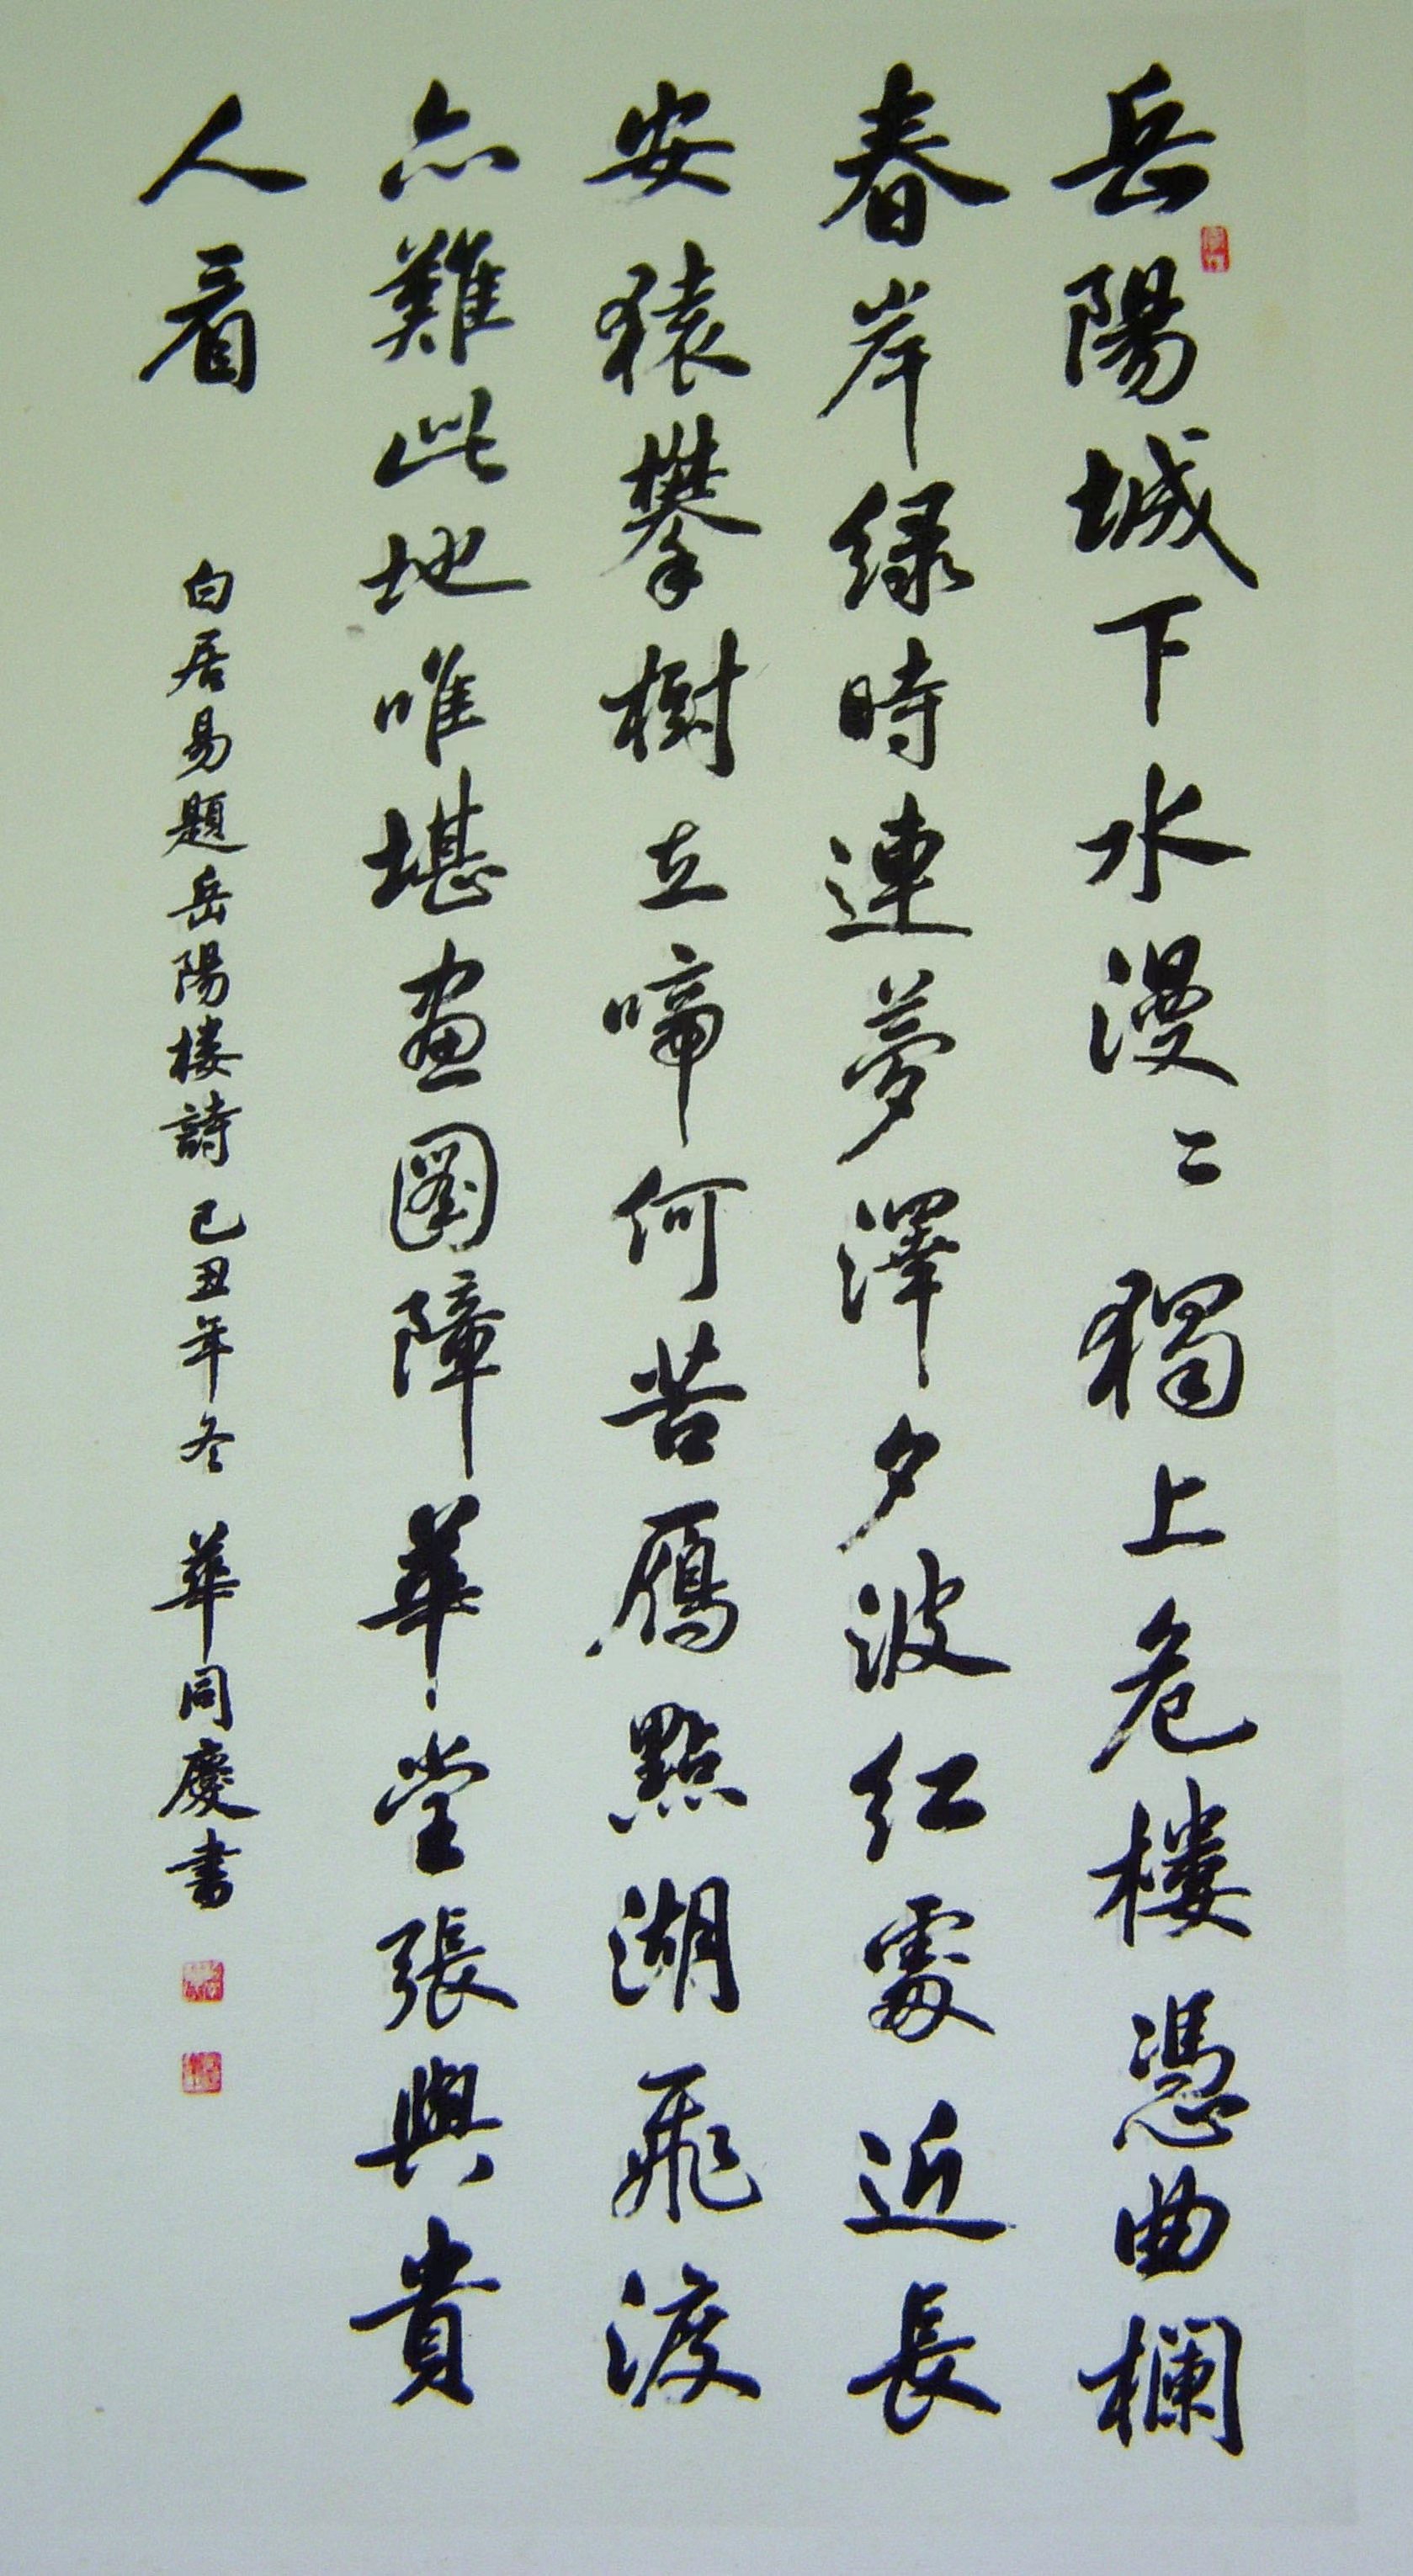 岳陽城下水漫〻獨上危楼憑曲欄
春岸緑時連夢澤夕波红處近長
安猿攀樹立啼何苦鴈點湖飛渡
亦難此地唯堪畫圖障華堂張與貴
人看
白居易題岳陽楼詩己丑年冬 華同慶書